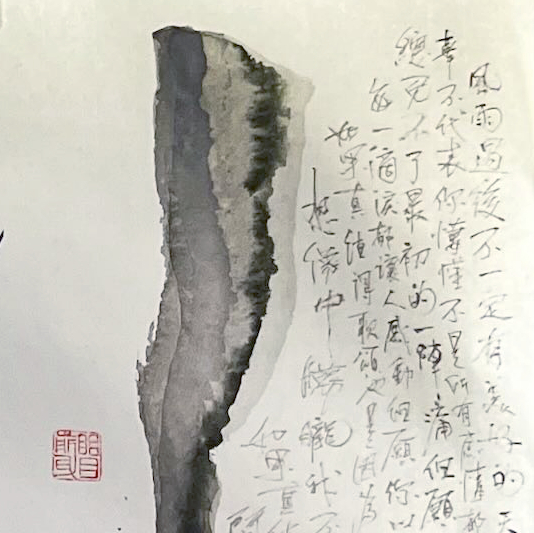 風雨過後不一定有美好的天
辜不代表你懵懂不是所有感情都
總免不了最初的一陣痛但願
每一滴淚都讓人感動但願你以
如果真值得歌頌也是因為
想像中朦朧我不
如果真值